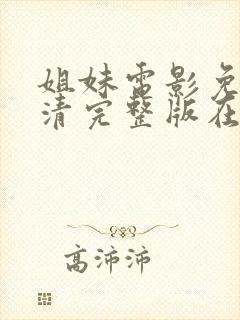 姐妹电影免
清完整版在
高沛沛